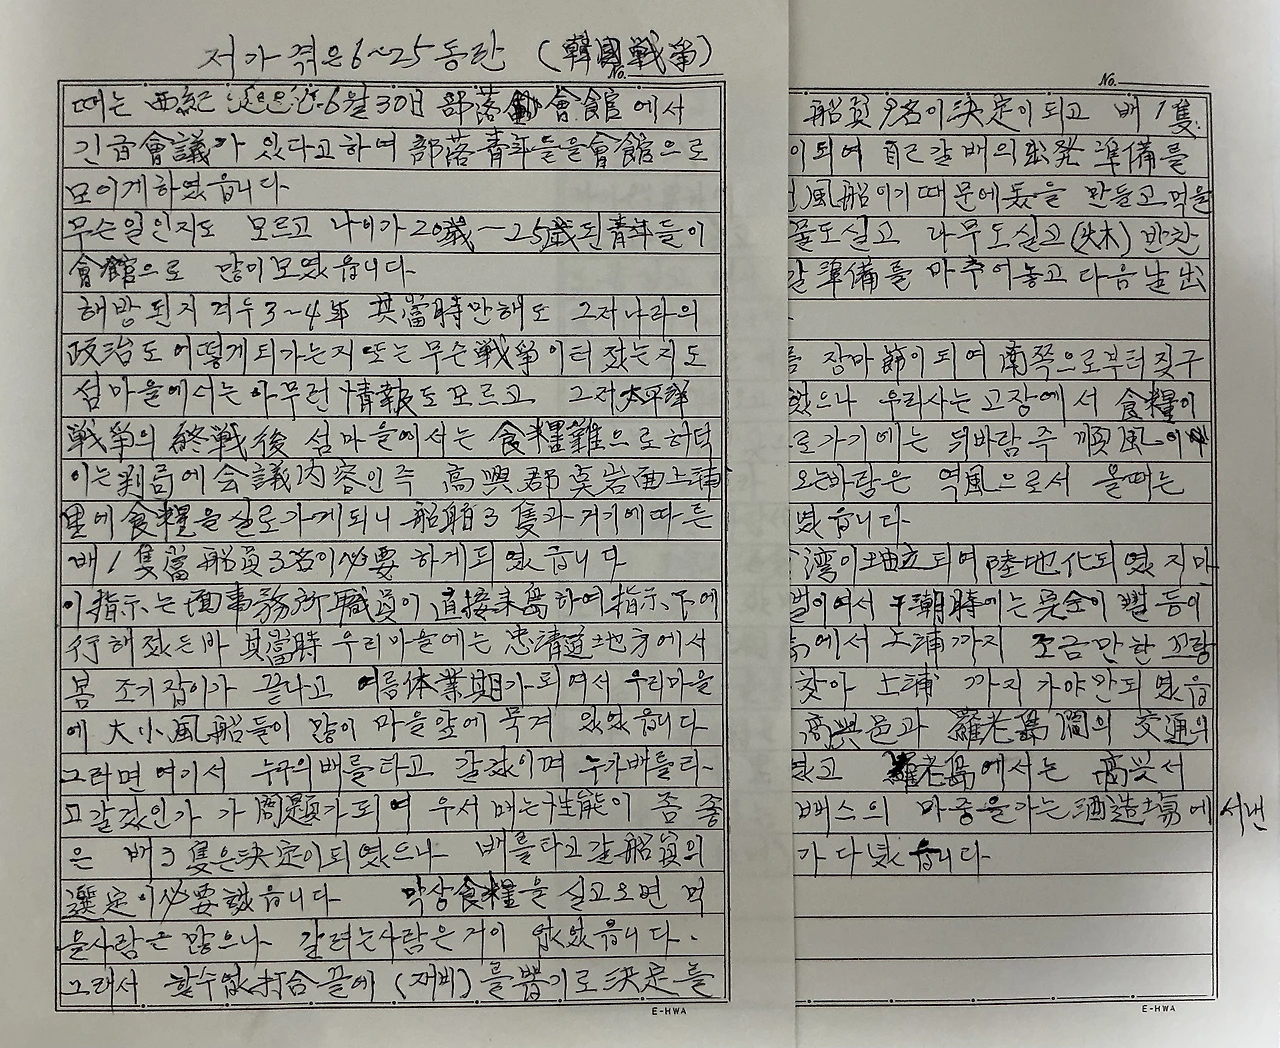 저가 겪은 6~25 동란 (韓國戦爭)
No.
때는 西紀 6월 30日 部落 會館에서
긴급會議가 있다고하여 部落青年들을會館으로
모이게하였읍니다
무슨일인지도 모르고 나이가 20歲~25歲된青年들이
會館으로 많이모였읍니다.
해방된지 겨우 3~4年 其當時만해도 그저나라의
政治도 어떻게되가는지 또는 무슨戦爭이터졌는지도
섬마을에서는 아무런 情報도모르고 그저太平洋
戦爭의 終戦後 섬마을에서는 食糧難으로허덕
이는判局에 会議内容인주 高興郡 岩面上浦
里에食糧을실로가게되니 船舶3隻과 거기에따른
배1隻當船員3名이必要하게되였읍니다
이指示는 面事務所職員이 直接来島하여指示下에
行해졌든바 其當時 우리마을에는 忠清道地方에서
봄 조기잡이가 끝나고 여름休業期가되여서 우리마을
에 大小風船들이 많이 마을앞에 묵겨 있었읍니다
그러면 여기서 누구의배를타고 갈겄이며 누가배를타
고갈겄인가 가問題가되여 우서 배는性能이 좀 좋
은 배3隻은決定이되였으나 배를타고갈船員의
選定이必要했읍니다 막상食糧을 실고오면 먹
을사람은 많으나 갈려는사람은거이 없었읍니다.
그래서 할수없打合끝에 (재비)를뽑기로決定을
No.
船員9名이決定이되고 배1隻
이되여 自己갈배의出発準備를
風船이기때문에돛을 만들고먹을
물도실고 나무도실고(火木) 반찬
갈準備를 마추어놓고다음날出
장마節이되여南쪽으로부터짖구
였으나 우리사는고장에서 食糧이
로가기에는 뒤바람주 順風이
오는바람은 역風으로서 올때는
였읍니다
湾이 되여陸地化되였지만
벌이여서 干潮時에는완全이 뻘등이
에서 上浦까지 조금만한꼬랑
찾아 上浦까지가야만되였읍
高興邑과 羅老島間의 交通의
였고 羅老島에서는 高興서
뻐스의 마중을가는酒造場에서낸
가다녔읍니다
E-HWA
E-HWA